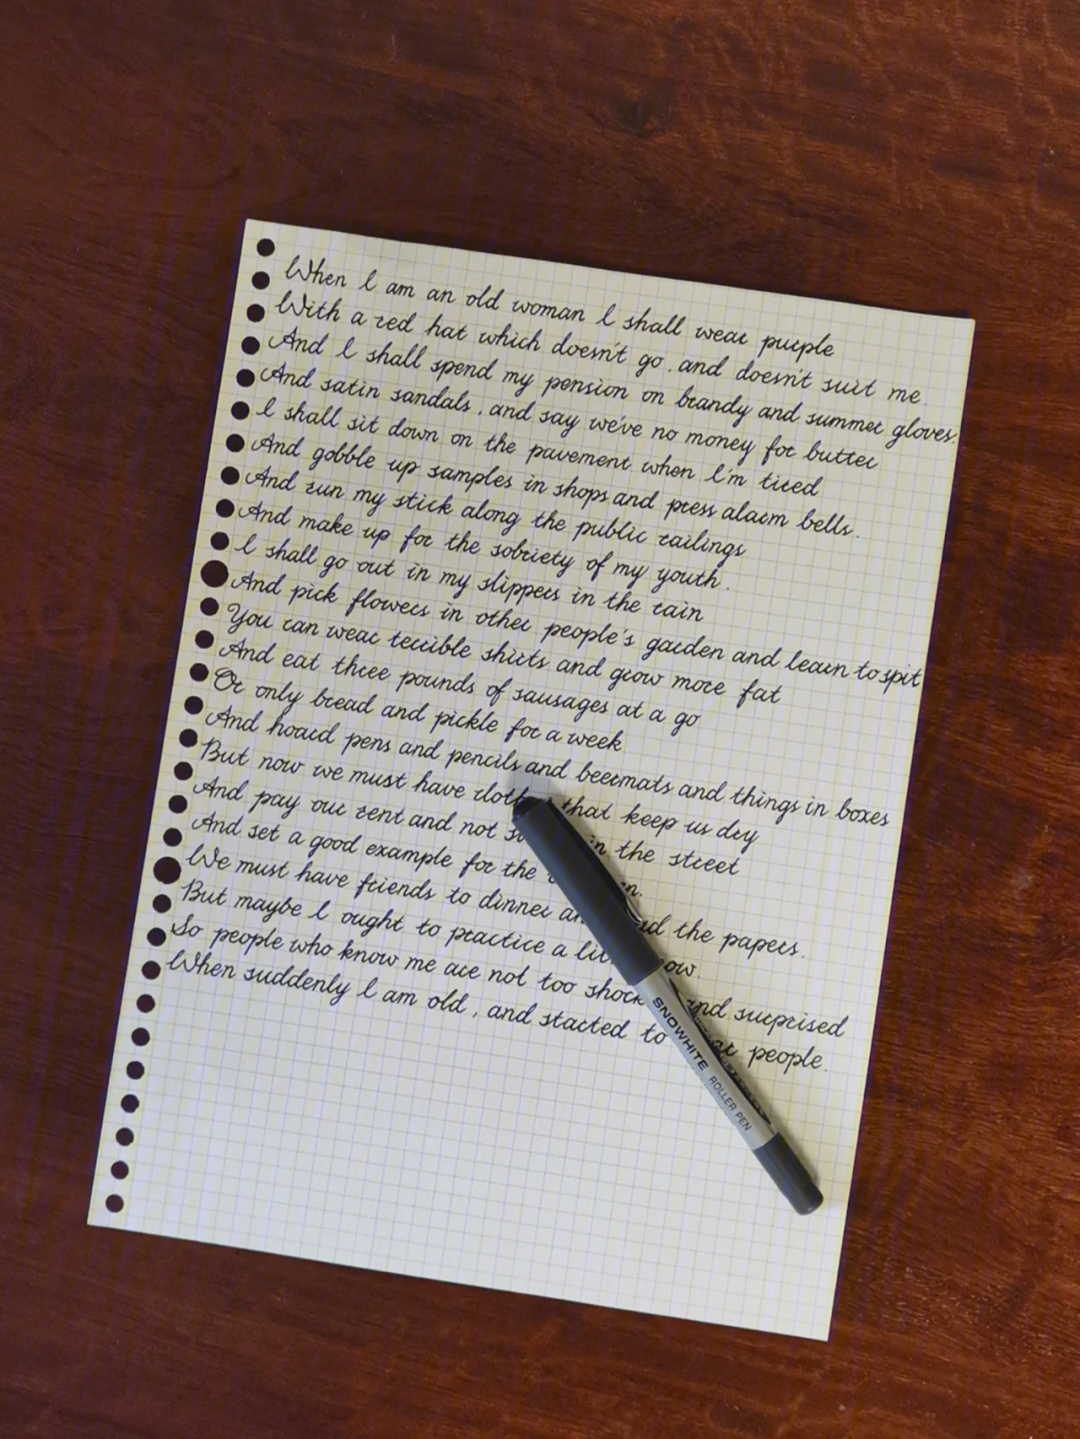 When I am an old woman I shall wear purple
With a red hat which doesn't go, and doesn't suit me.
And I shall spend my pension on brandy and summer gloves.
And satin sandals, and say we've no money for butter
I shall sit down on the pavement when I'm tired
And gobble up samples in shops and press alarm bells.
And run my stick along the public railings
And make up for the sobriety of my youth.
I shall go out in my slippers in the rain
And pick flowers in other people's garden and learn to spit
You can wear terrible shirts and grow more fat
And eat three pounds of sausages at a go
Or only bread and pickle for a week
And hoard pens and pencils and beermats and things in boxes
But now we must have that keep us dry
And pay our rent and not in the street
And set a good example for the
We must have friends to dinner the papers.
But maybe I ought to practice a
So people who know me are not too and surprised
When suddenly I am old, and started to people.
SNOWHITE ROLLER PEN